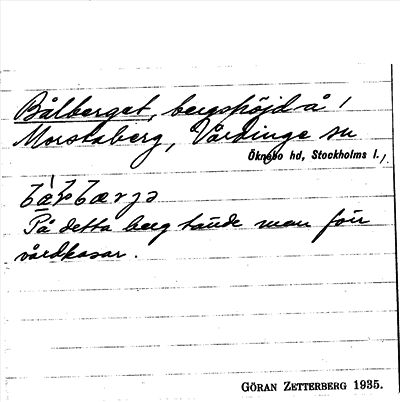 Bålberget, bergshöjd å /
Morstaberg, Vårdinge sn
Öknebo hd, Stockholms l./.
På detta berg tände man förr
vårdkasar.
GÖRAN ZETTERBERG 1935.